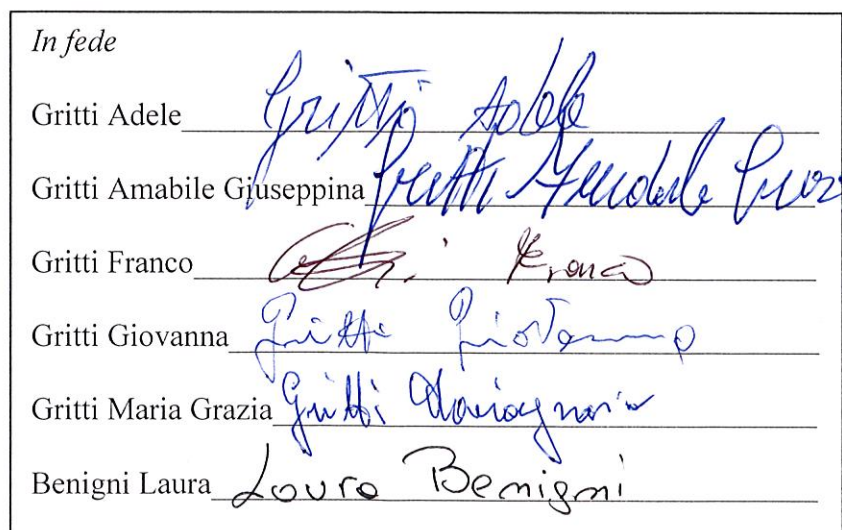 In fede
Gritti Adele Gritti Adele
Gritti Amabile Giuseppina Gritti Amabile
Gritti Franco Franco
Gritti Giovanna Gritti Giovanna
Gritti Maria Grazia Gritti Mariagrazia
Benigni Laura Laura Benigni